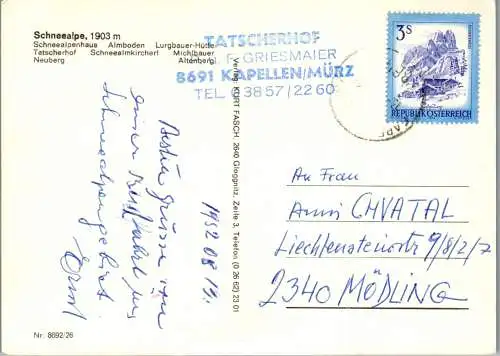 Schneealpe, 1903 m
Schneealpenhaus Almboden Lurgbauer-Hütte
Tatscherhof Schneealmkircherl Michlbauer
Neuberg Altenberg
TATSCHERHOF
F. GRIESMAIER
8691 KAPELLEN/MÜRZ
TEL 03857/2260
3S
REPUBLIK ÖSTERREICH
Verlag KURT FASCH, 2640 Gloggnitz, Zeile 3, Telefon (0 26 62) 23 01
Beste Grüsse von
einer Bergfahrt ins
Schneealpengebiet
Ernst
1982 08 19.
An Frau
Anni CHVATAL
Liechtensteinstr 9/8/2/7
2340 MÖDLING
Nr. 8692/26